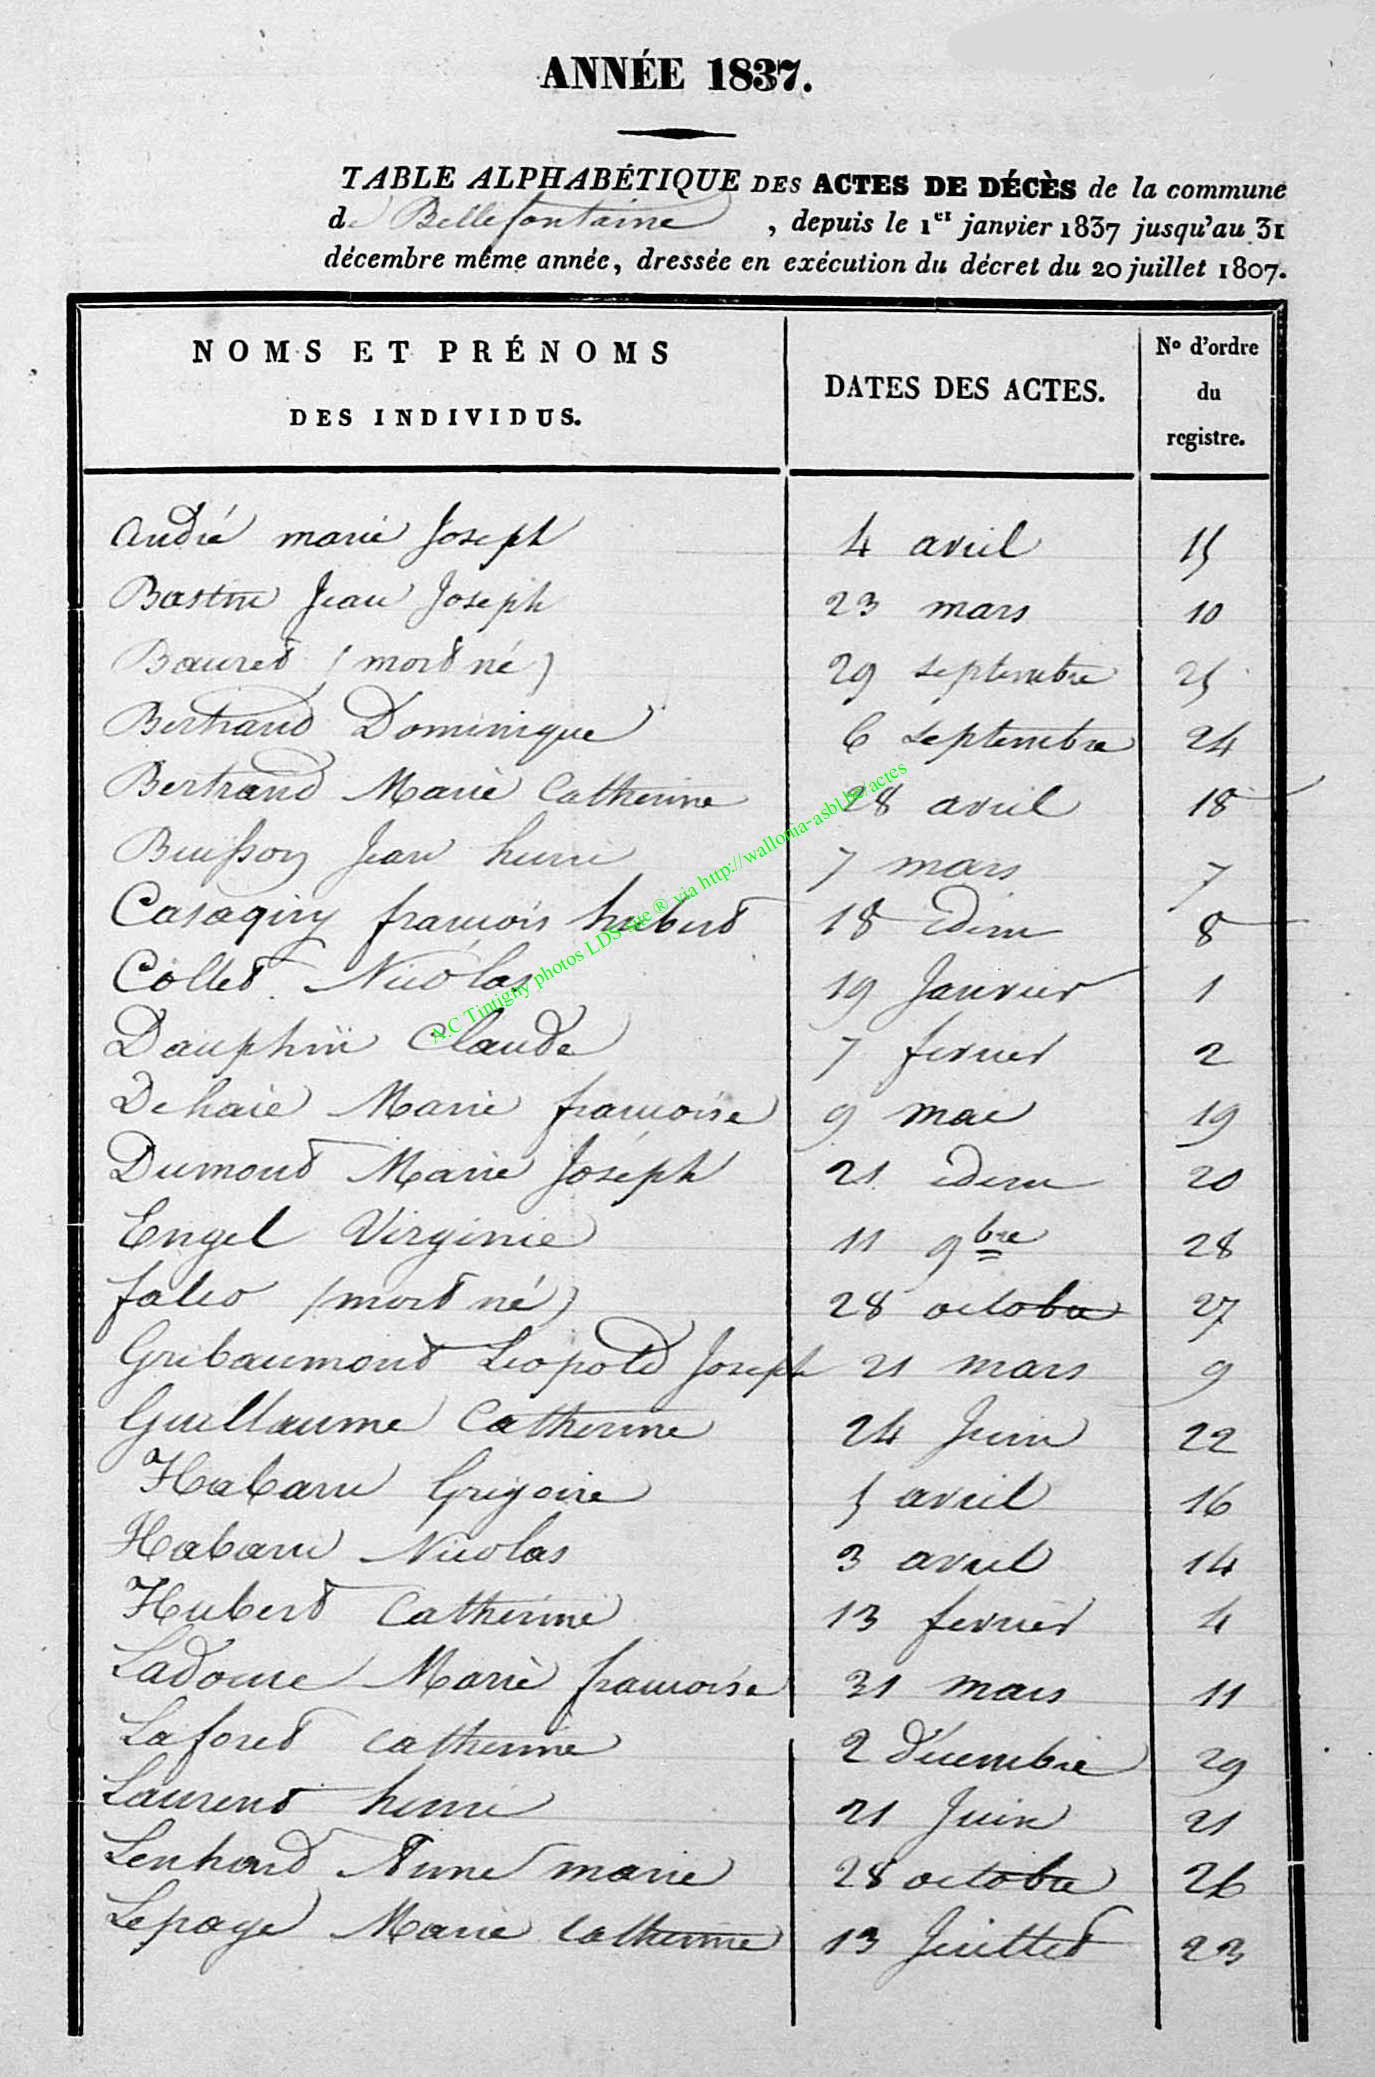 ANNÉE 1837.
TABLE ALPHABÉTIQUE DES ACTES DE DÉCÈS de la commune
de Bellefontaine, depuis le 1er janvier 1837 jusqu'au 31
décembre même année, dressée en exécution du décret du 20 juillet 1807.
NOMS ET PRÉNOMS DES INDIVIDUS. DATES DES ACTES. No d'ordre du registre.
André marie Joseph 4 avril 15
Bastin Jean Joseph 23 mars 10
Bauret (mort né) 29 septembre 25
Bertrand Dominique 6 septembre 24
Bertrand Marie Catherine 28 avril 18
Buisson Jean henri 7 mars 7
Casaqiry françois hubert 18 idem 8
Collet Nicolas 19 Janvier 1
Dauphin Claude 7 fevrier 2
Dehaie Marie francoise 9 mai 19
Dumont Marie Joseph 21 idem 20
Engel Virginie 11 9bre 28
(mort né) 28 octobre 27
Gribaumont Leopold Joseph 21 mars 9
Guillaume Catherine 24 Juin 22
Habaru Grégoire 5 avril 16
Habaru Nicolas 3 avril 14
Hubert Catherine 13 fevrier 4
Ladouce Marie francoise 31 mars 11
Laforet catherine 2 décembre 29
Laurent henri 21 Juin 21
Lenhard Anne marie 28 octobre 26
Lepage Marie catherine 13 Juillet 23
A.C Tintigny photos LDS site ® via http://wallonia-asbl.be/actes